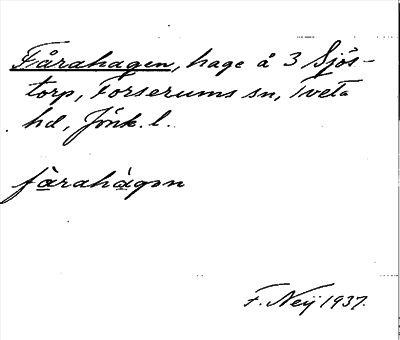 Fårahagen, hage å 3 Sjös-
torp, Forserums sn, Tveta
hd, Jönk. l.
fàrahàgən
F. Neij 1937.